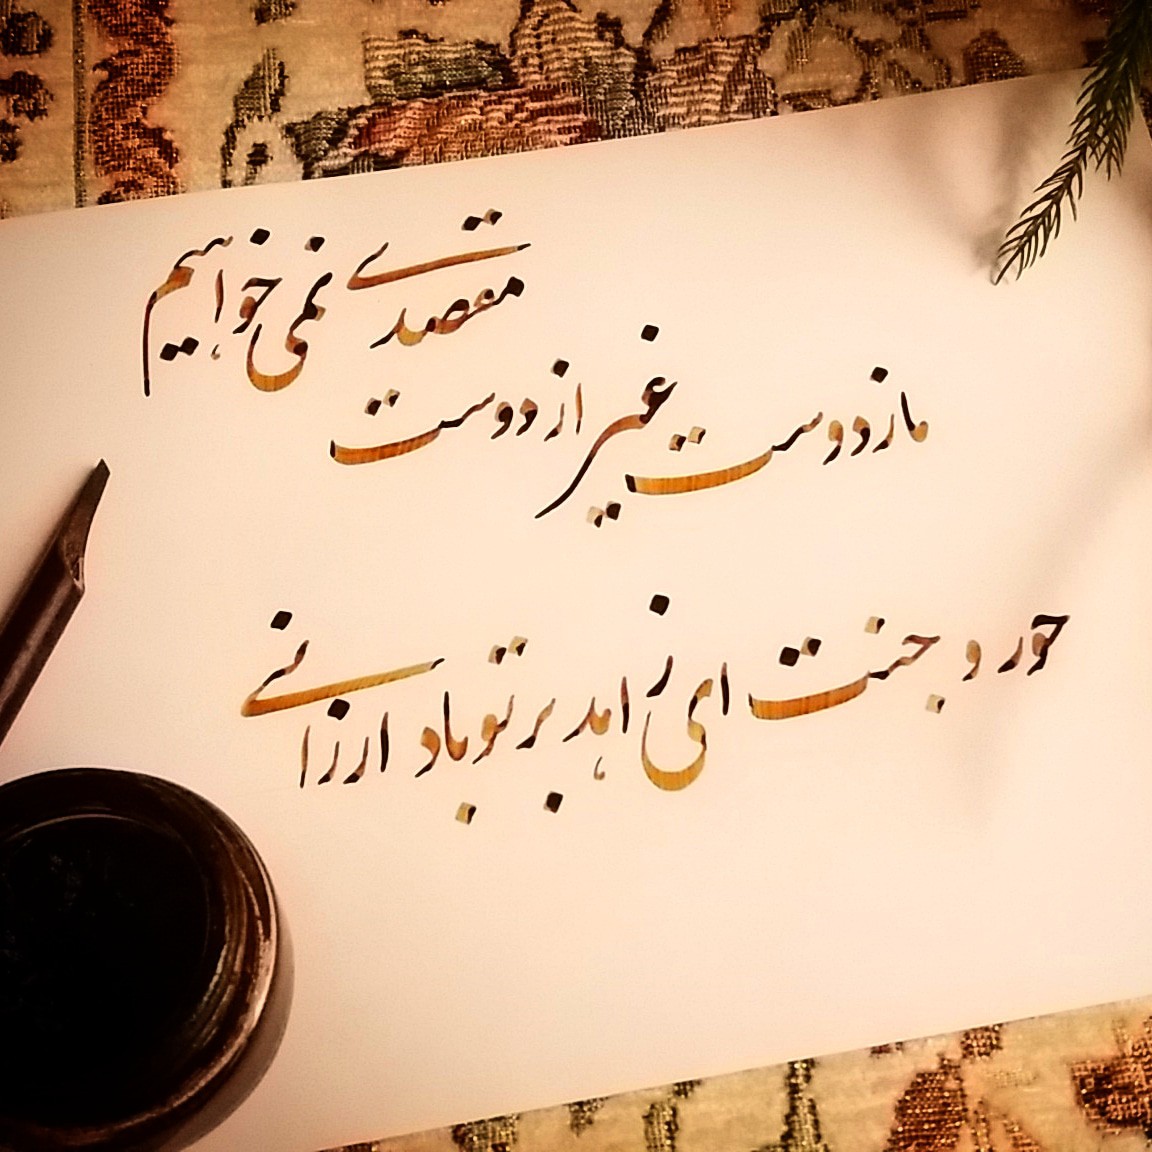 ما ز دوست غیر از دوست مقصدی نمی‌خواهیم
حور و جنت ای زاهد بر تو باد ارزانی